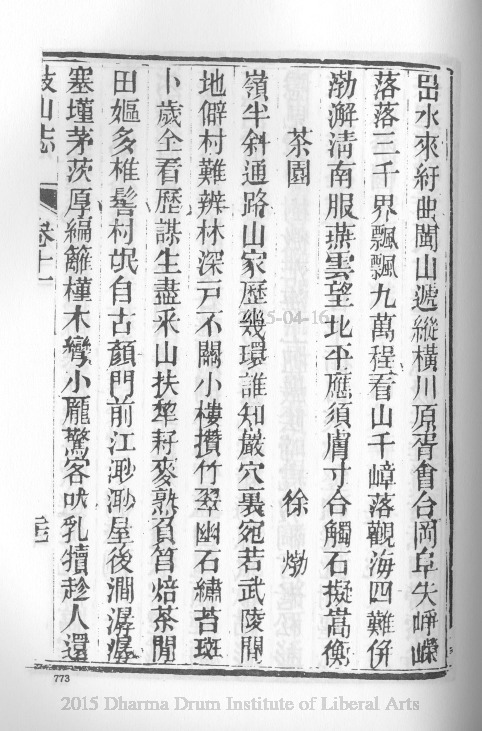 岊水來紆曲閩山遞縱橫川原胥會合岡阜失崢嶸
落落三千界飄飄九萬程看山千嶂落觀海四難併
渤澥清南服燕雲望北平應須膚寸合觸石擬嵩衡
茶園 徐𤊹
嶺半斜通路山家歷幾環誰知巖穴裏宛若武陵間
地僻村難辨林深戸不關小樓攢竹翠幽石繡苔斑
卜歲仝看歷謀生盡采山扶犂耔麥熟負筥焙茶閒
田嫗多椎髻村氓自古顏門前江渺渺屋後澗潺潺
塞墐茅茨厚編籬槿木彎小厖驚客吠乳犢趁人還
鼓山志 卷十一
773
5-04-16
2015 Dharma Drum Institute of Liberal Arts